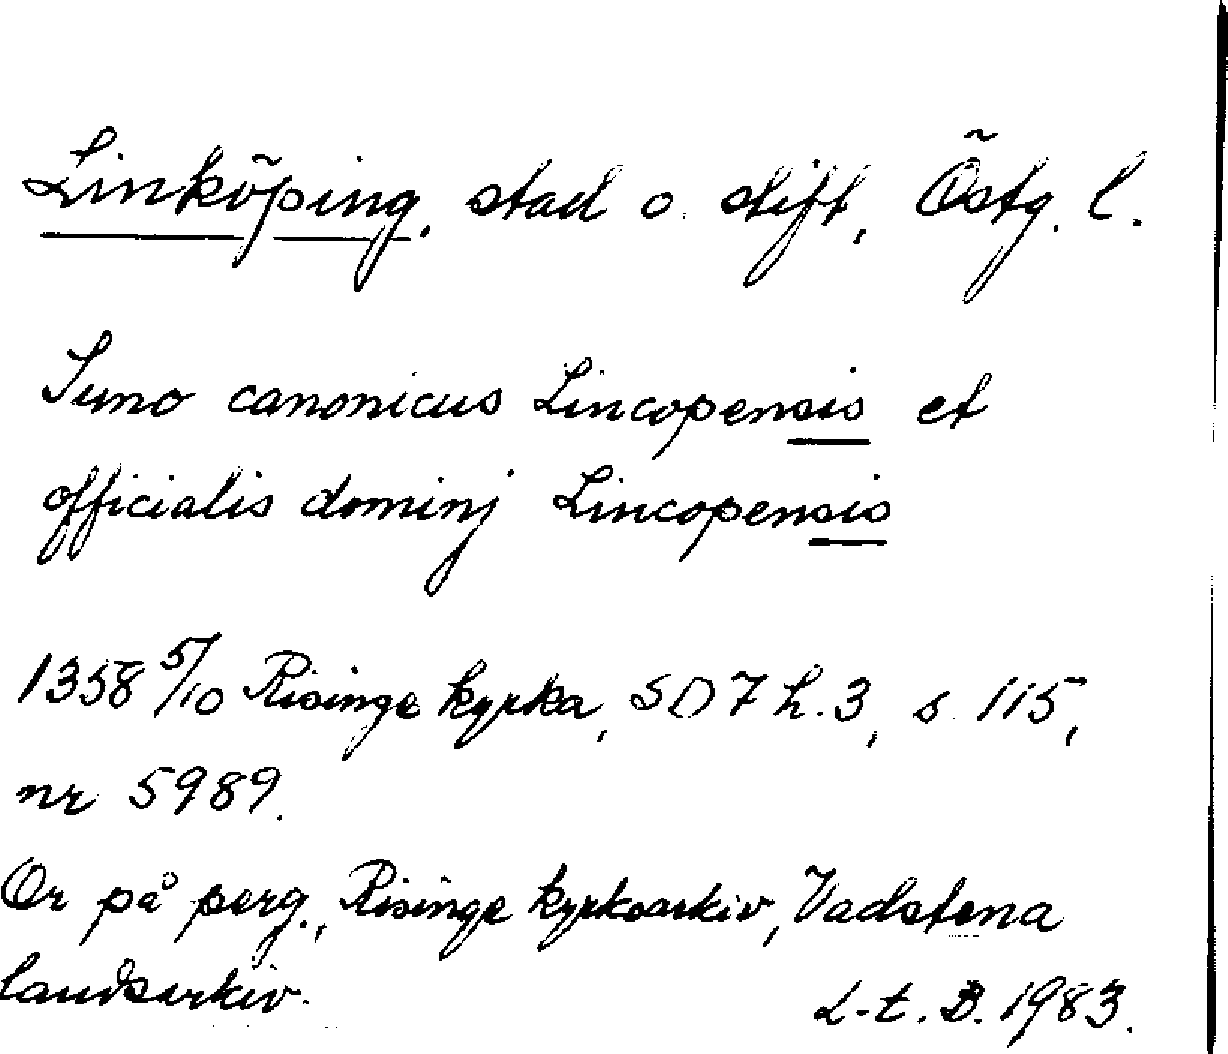 Linköping, stad o. stift, Östg. l.
Suno canonicus Lincopensis et
officialis dominj Lincopensis
1358 5/10 Risinge kyrka, SD 7 h. 3, s. 115,
nr 5989.
Or på perg., Risinge kyrkoarkiv, Vadstena
landsarkiv.
L-t. B. 1983.